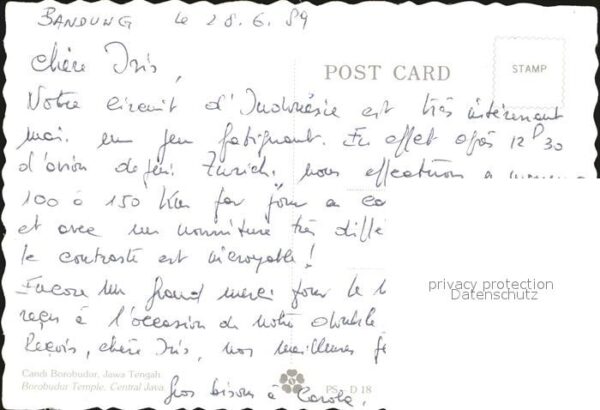 BANDUNG le 28.6.89
Chère Iris,
POST CARD
STAMP
Notre circuit d'Indonésie est très intéressant
mais un peu fatigant. En effet après 12 30
d'avion depuis Zurich, nous effectuons
100 à 150 Km par jour
et avec une nourriture très diffé
le contraste est incroyable!
Encore un grand merci pour le
reçu à l'occasion de notre double
Reçois, chère Iris, nos meilleures
gros bisous à Carole.
privacy protection
Datenschutz
Candi Borobudur, Jawa Tengah.
Borobudur Temple, Central Java.
PS - D 18